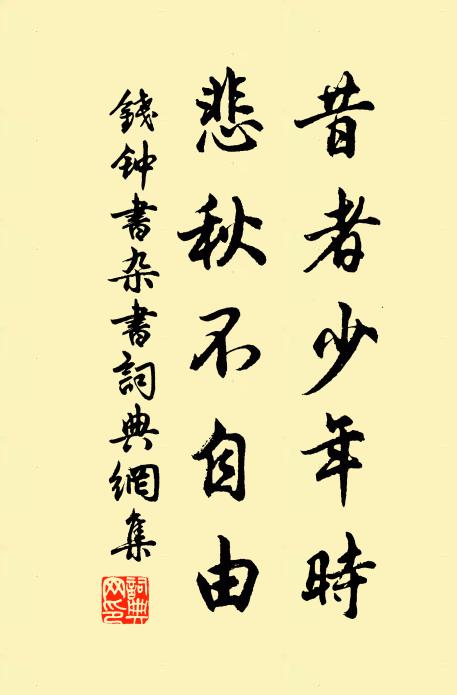 昔者少年時
悲秋不自由
錢钟書杂書詞典網集
詞典
网印